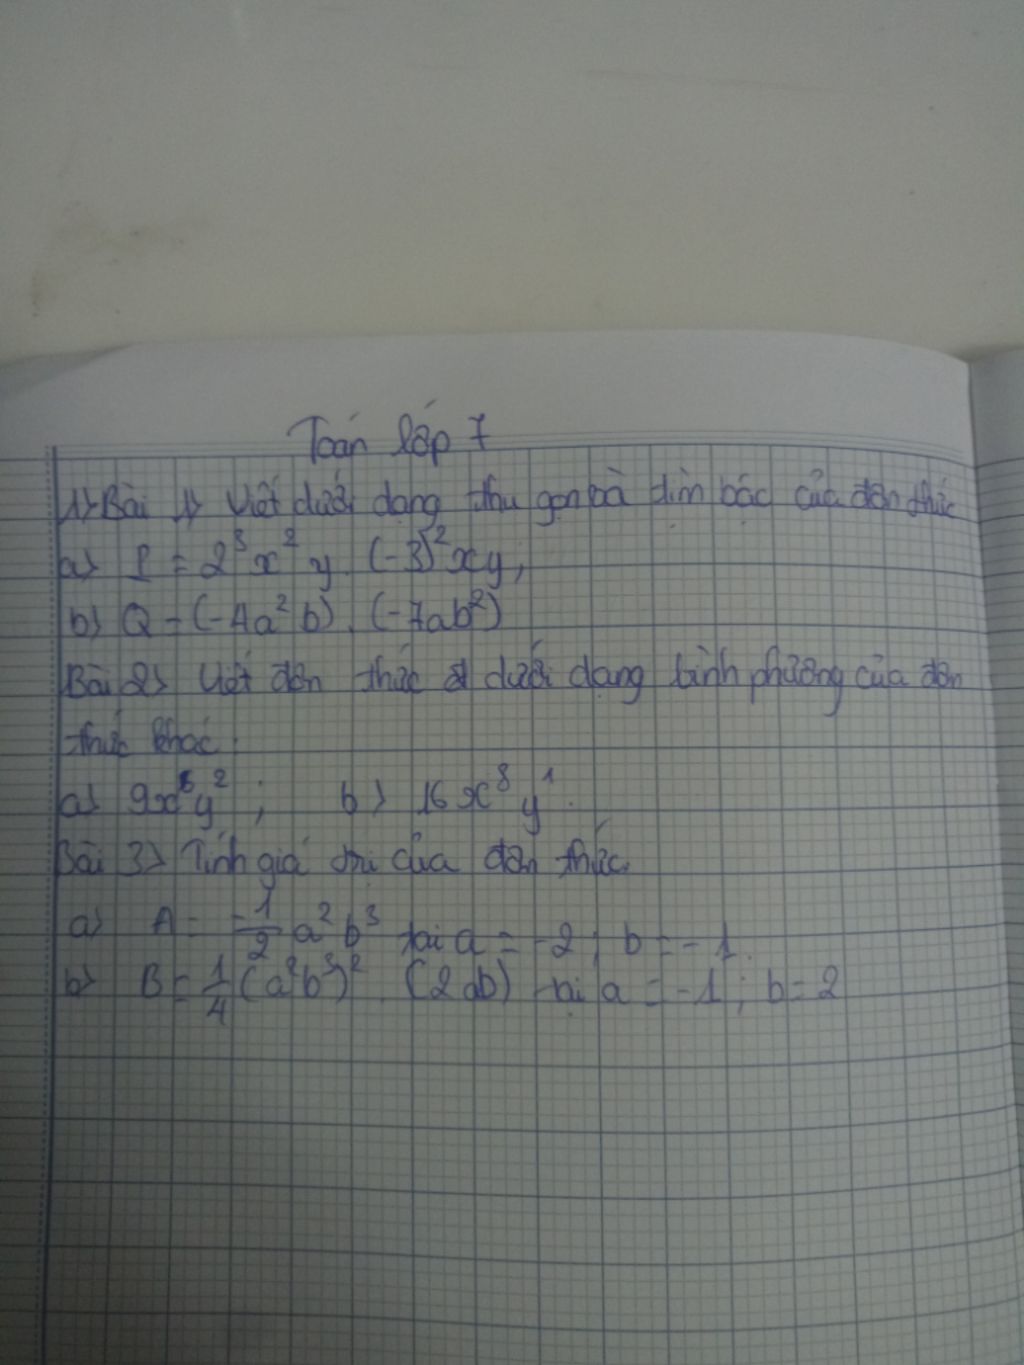 Toán lớp 7
1> Bài 1> Viết dưới dạng thu gọn và tìm bậc của đơn thức
a) P = 2³x²y. (-3)²xy;
b) Q = (-4a²b). (-7ab²)
Bài 2> Viết đơn thức dưới dạng bình phương của đơn
thức khác:
a) 9x⁶y²; b) 16x⁸y¹.
Bài 3> Tính giá trị của đơn thức.
a) A = -1/2 a²b³ tại a = -2; b = -1.
b) B = 1/4 (a²b³)². (2ab) tại a = -1; b = 2